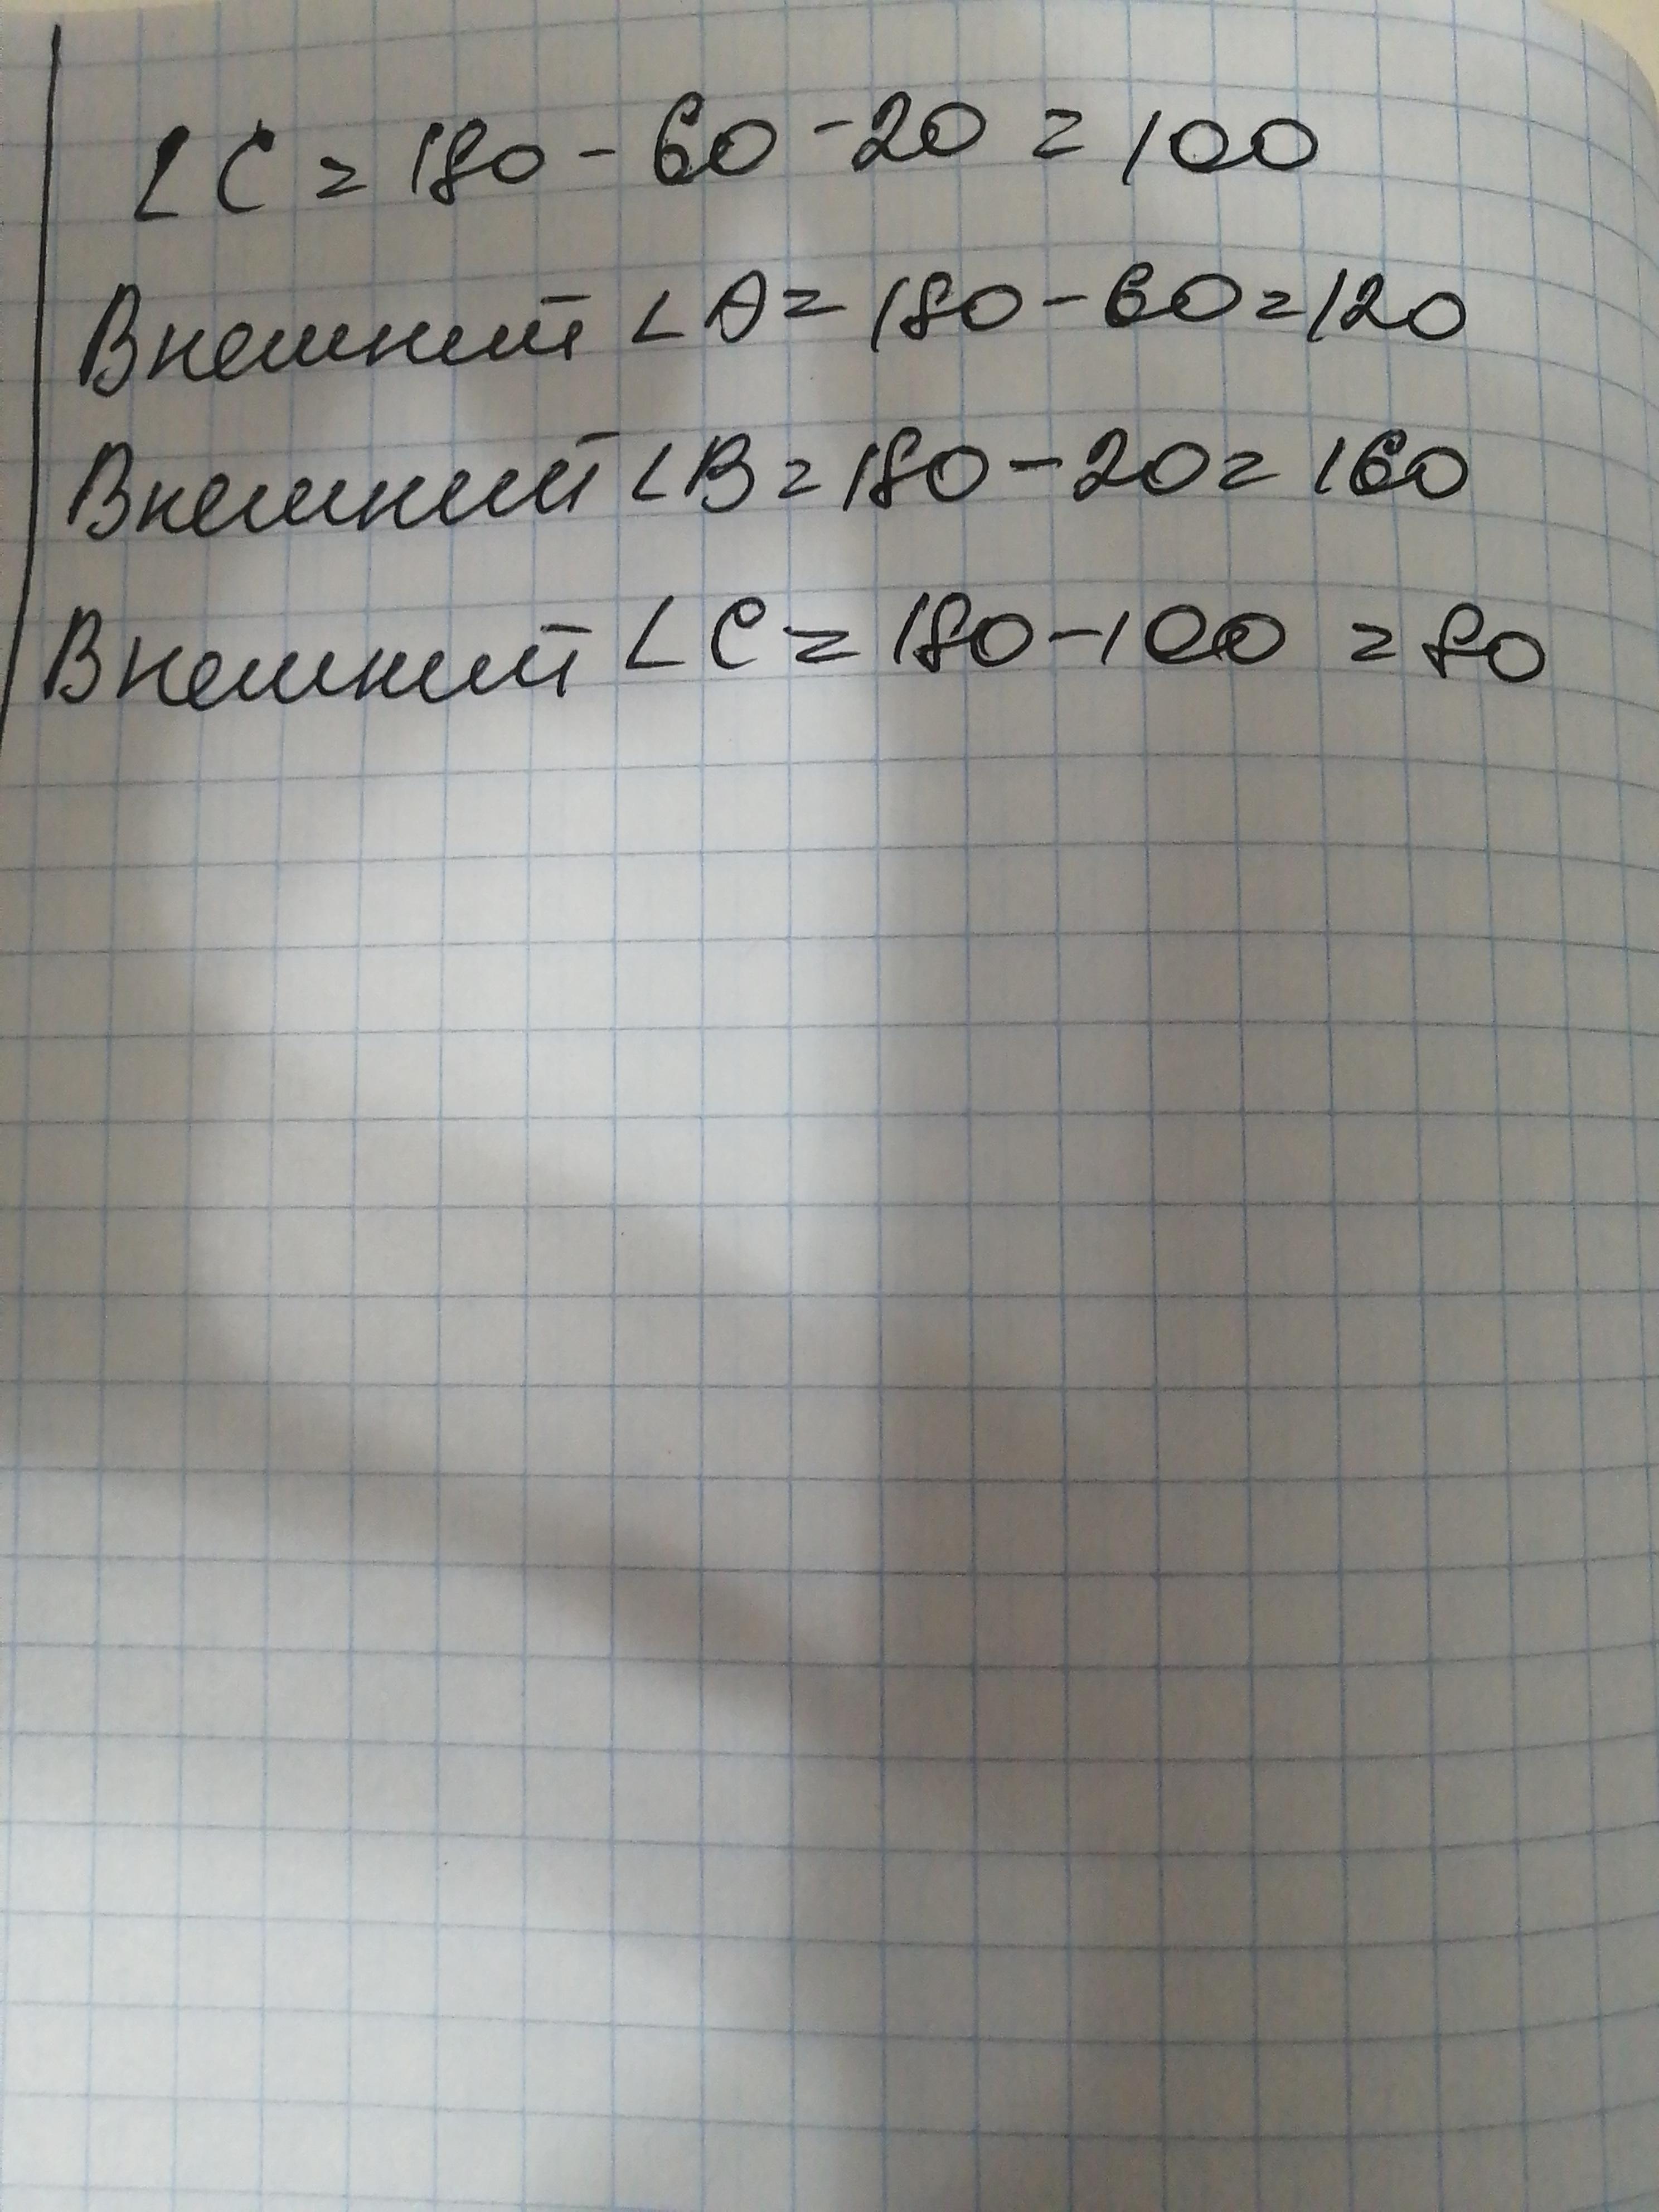 ∠C = 180 - 60 - 20 = 100
Внешний ∠A = 180 - 60 = 120
Внешний ∠B = 180 - 20 = 160
Внешний ∠C = 180 - 100 = 80